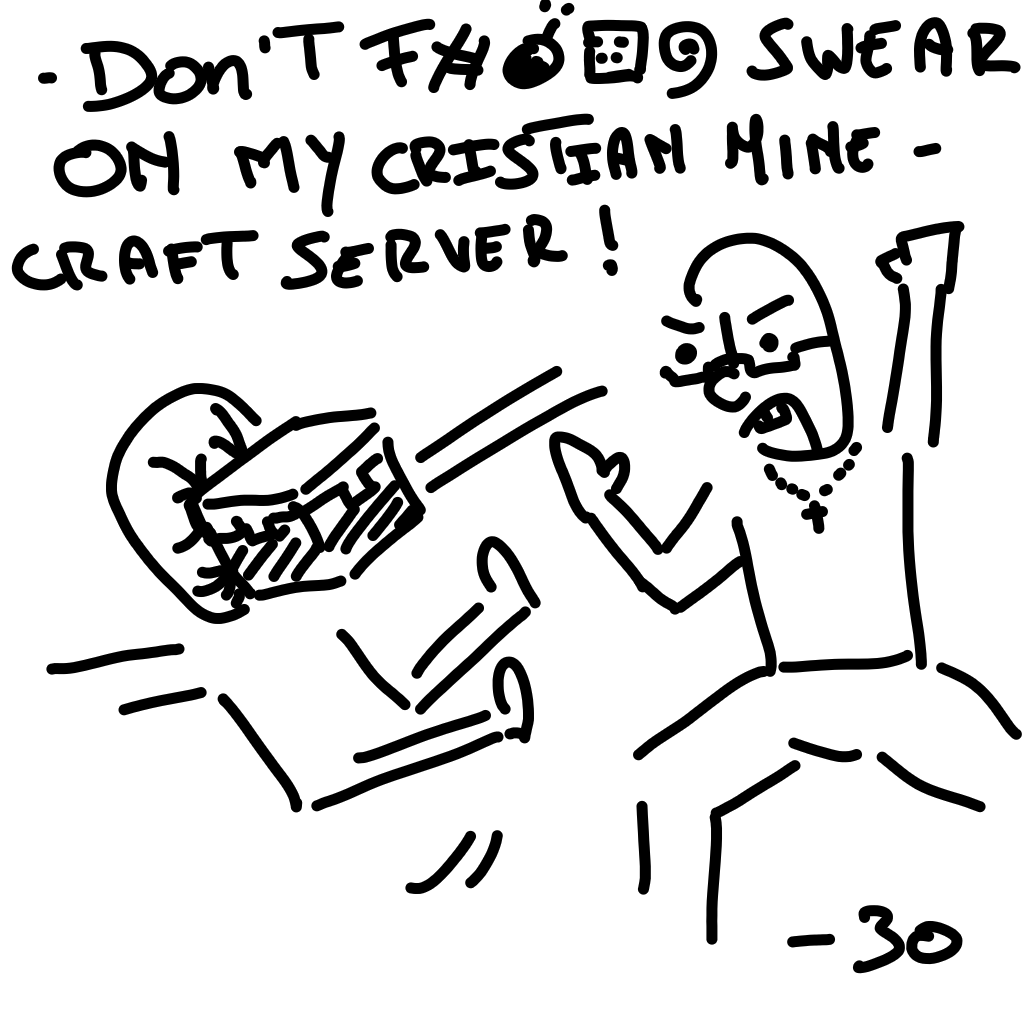 - Don'T F#💣🎲@ SWEAR
ON MY CRISTIAN MINE -
CRAFT SERVER!
-30